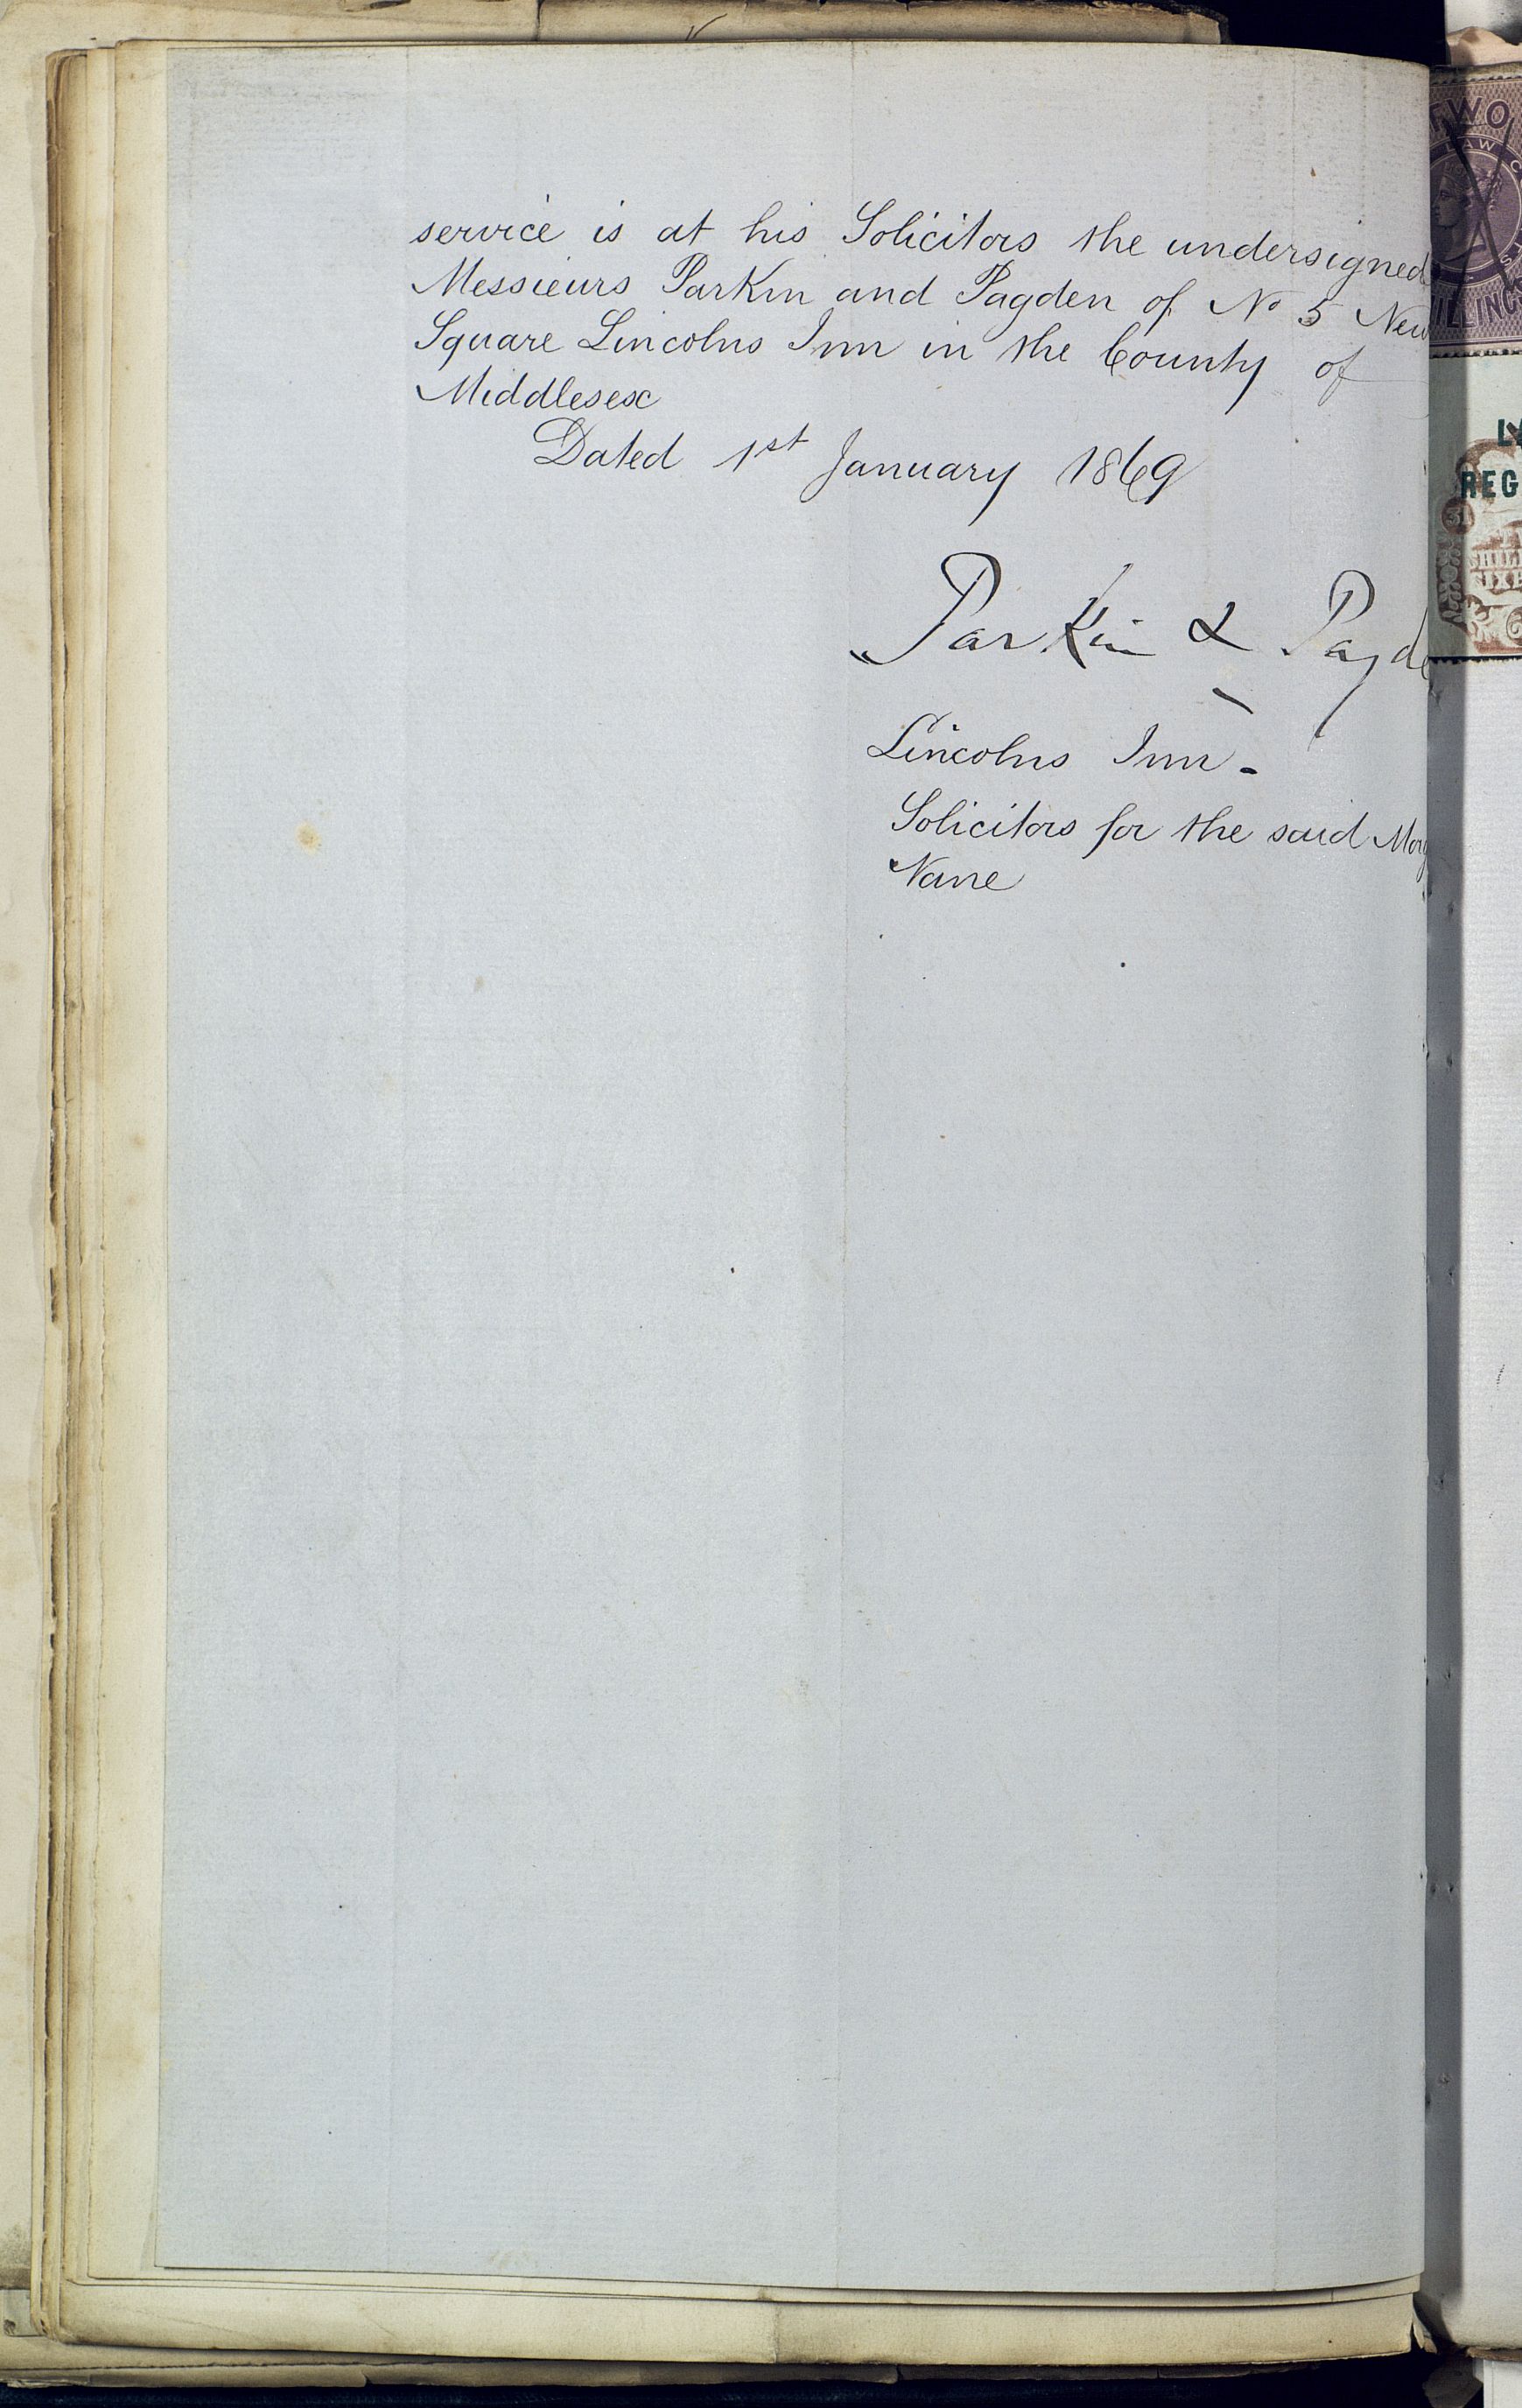 service is at his Solicitors the undersigned
Messieurs Parkin and Pagden of No 5 New
Square Lincolns Inn in the County of
Middlesex
Dated 1st January 1869
Parkin & Pagde
Lincolns Inn -
Solicitors for the said
Vane
TWO
LAW
REG